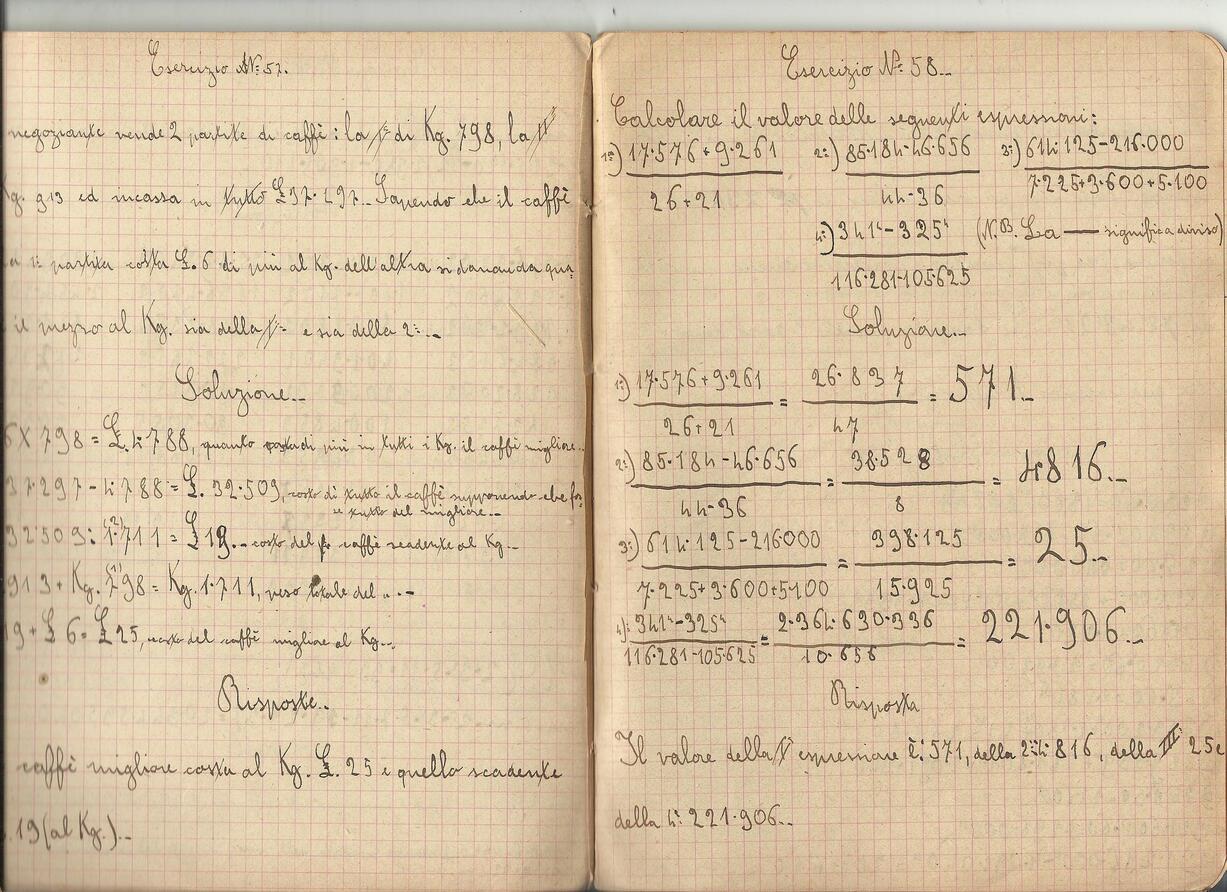 Esercizio N: 57.
negoziante vende 2 partite di caffè: la Iª di Kg. 798, la IIª
Kg. 913 ed incassa in tutto £ 37.297.. Sapendo che il caffè
1ª partita costa £. 6 di più al Kg. dell'altra si domanda qua-
il prezzo al Kg. sia della Iª e sia della 2ª...
Soluzione...
6 X 798 = £. 4.788, quanto costa di più in tutti i Kg. il caffè migliore...
37.297 - 4.788 = £. 32.509, costo di tutto il caffè supponendo che fos-
se tutto del migliore...
32509 : 1.711 = £ 19... costo del caffè scadente al Kg...
913 + Kg. 798 = Kg. 1.711, peso totale del " . -
19 + £ 6 = £ 25, costo del caffè migliore al Kg...
Risposte..
caffè migliore costa al Kg. £. 25 e quello scadente
. 19 (al Kg.)..
Esercizio N: 58...
Calcolare il valore delle seguenti espressioni:
1ª) 17.576 + 9.261 2ª) 85.184 - 46.656 3ª) 614.125 - 216.000
26 + 21 44 - 36 7.225 + 3.600 + 5.100
4ª) 341⁴ - 325⁴ (N.B. La — significa diviso)
116.281 - 105625
Soluzione...
1ª) 17.576 + 9.261 = 26.837 = 571..
26 + 21 47
2ª) 85.184 - 46.656 = 38.528 = 4816..
44 - 36 8
3ª) 614.125 - 216000 = 398.125 = 25..
7.225 + 3.600 + 5.100 15.925
4): 341⁴ - 325⁴ = 2.364.630.336 = 221.906...
116.281 - 105.625 10.656
Risposta
Il valore della Iª espressione è: 571, della 2ª: 4816, della IIIª 25 e
della 4ª: 221.906...